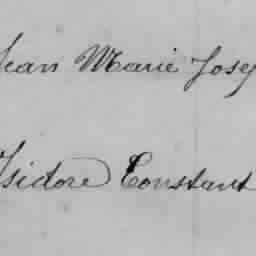 Jean Marie Josep
Isidore Constant